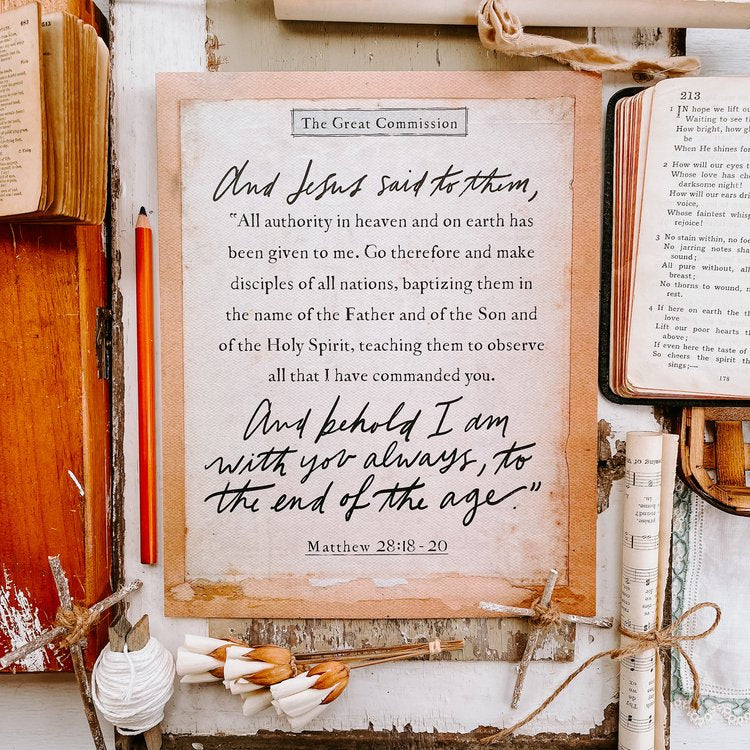 The Great Commission
And Jesus said to them,
"All authority in heaven and on earth has
been given to me. Go therefore and make
disciples of all nations, baptizing them in
the name of the Father and of the Son and
of the Holy Spirit, teaching them to observe
all that I have commanded you.
And behold I am
with you always, to
the end of the age."
Matthew 28:18-20
213
1 IN hope we lift ou
Waiting to see th
How bright, how gl
be
When He shines for
2 How will our eyes t
Whose love has che
darksome night!
How will our ears d
voice,
Whose faintest whisp
rejoice!
3 No stain within, no foe
No jarring notes sha
sound;
All pure without, all
breast;
No thorns to wound, n
rest.
4 If here on earth the th
love
Lift our poor hearts th
above;
If even here the taste of
So cheers the spirit th
sings;—
175